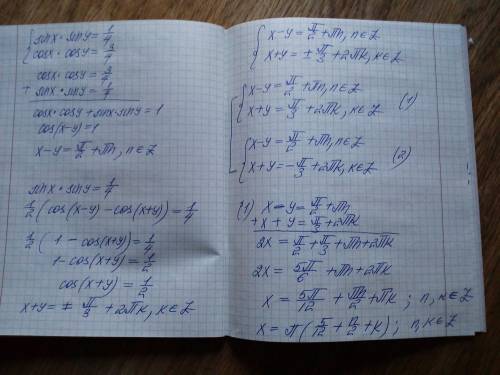 { sinx·siny = 1/4
{ cosx·cosy = 3/4
cosx·cosy = 3/4
+ sinx·siny = 1/4
cosx·cosy + sinx·siny = 1
cos(x-y) = 1
x-y = π/2 + πn, n∈Z
sinx·siny = 1/4
1/2 (cos(x-y) - cos(x+y)) = 1/4
1/2 (1 - cos(x+y)) = 1/4
1 - cos(x+y) = 1/2
cos(x+y) = 1/2
x+y = ± π/3 + 2πk, k∈Z
{ x-y = π/2 + πn, n∈Z
{ x+y = ± π/3 + 2πk, k∈Z
[ { x-y = π/2 + πn, n∈Z
{ x+y = π/3 + 2πk, k∈Z (1)
{ x-y = π/2 + πn, n∈Z
{ x+y = -π/3 + 2πk, k∈Z (2)
(1) x-y = π/2 + πn
+ x+y = π/3 + 2πk
2x = π/2 + π/3 + πn + 2πk
2x = 5π/6 + πn + 2πk
x = 5π/12 + πn/2 + πk ; n, k∈Z
x = π(5/12 + n/2 + k) ; n, k∈Z